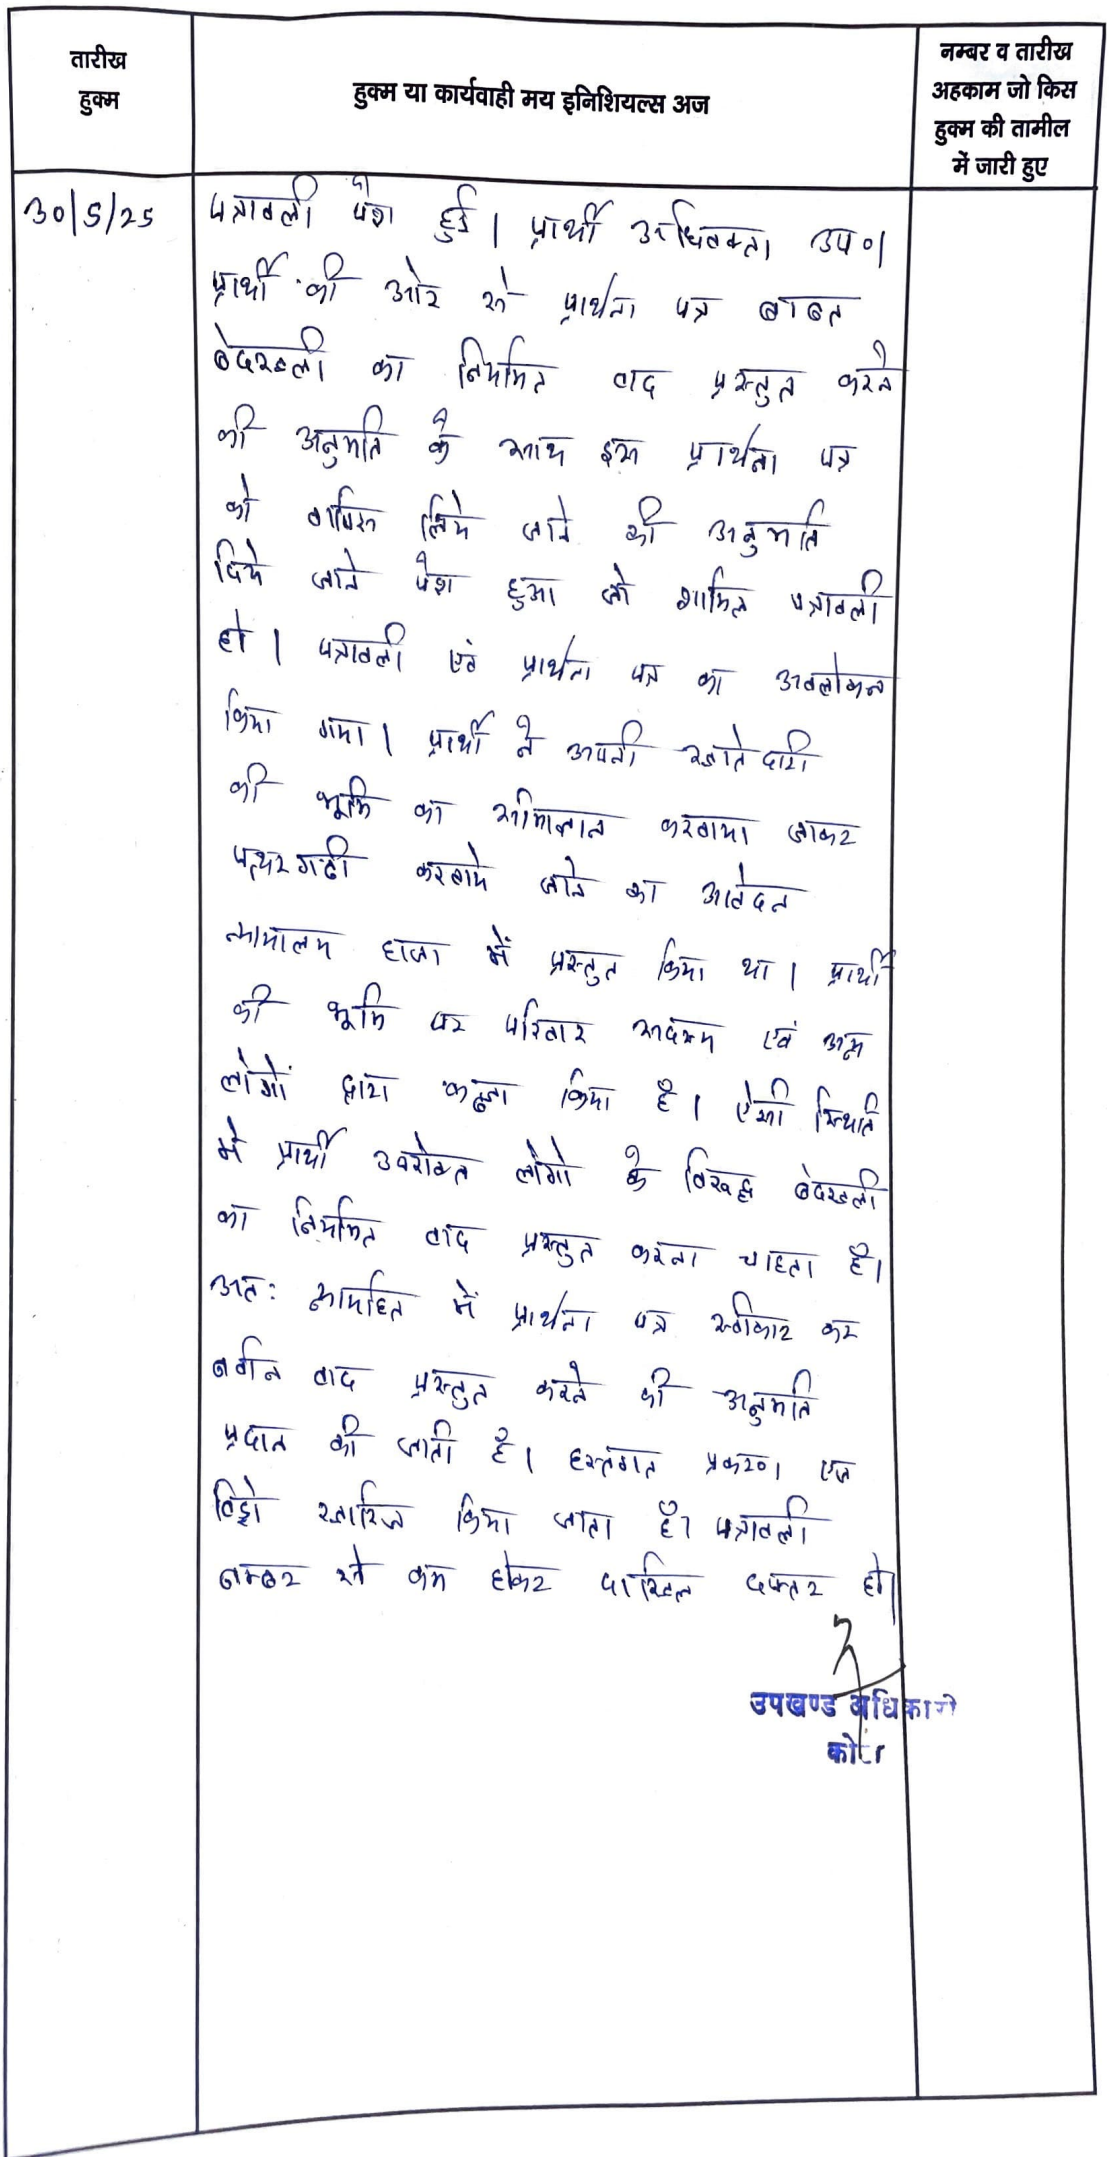 तारीख
हुक्म
हुक्म या कार्यवाही मय इनिशियल्स अज
नम्बर व तारीख
अहकाम जो किस
हुक्म की तामील
में जारी हुए
30/5/25
पत्रावली पेश हुई। प्रार्थी अधिवक्ता उप०।
प्रार्थी की ओर से प्रार्थना पत्र बाबत
बेदखली का नियमित वाद प्रस्तुत करने
की अनुमति के साथ इस प्रार्थना पत्र
को वापिस लिये जाने की अनुमति
दिये जाने पेश हुआ जो शामिल पत्रावली
हो। पत्रावली एवं प्रार्थना पत्र का अवलोकन
किया गया। प्रार्थी ने अपनी खातेदारी
की भूमि का सीमाज्ञान करवाया जाकर
पत्थरगढी करवाये जाने का आवेदन
न्यायालय हाजा में प्रस्तुत किया था। प्रार्थी
की भूमि पर परिवार सदस्य एवं अन्य
लोगों द्वारा कब्जा किया है। ऐसी स्थिति
में प्रार्थी उपरोक्त लोगो के विरूद्ध बेदखली
का नियमित वाद प्रस्तुत करना चाहता है।
अतः न्यायहित में प्रार्थना पत्र स्वीकार कर
नवीन वाद प्रस्तुत करने की अनुमति
प्रदान की जाती है। हस्तगत प्रकरण एज
विड्रो खारिज किया जाता है। पत्रावली
नम्बर से कम होकर दाखिल दफ्तर हो।
उपखण्ड अधिकारी